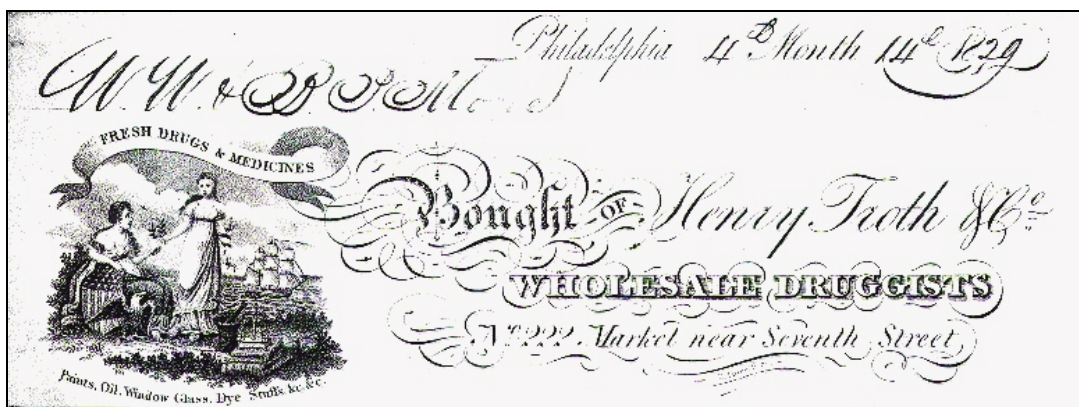 Philadelphia 4th Month 14th 1829
W. W. &
FRESH DRUGS & MEDICINES
Bought OF Henry Troth & Co.
WHOLESALE DRUGGISTS
No. 222 Market near Seventh Street
Paints, Oil, Window Glass, Dye Stuffs, &c. &c.